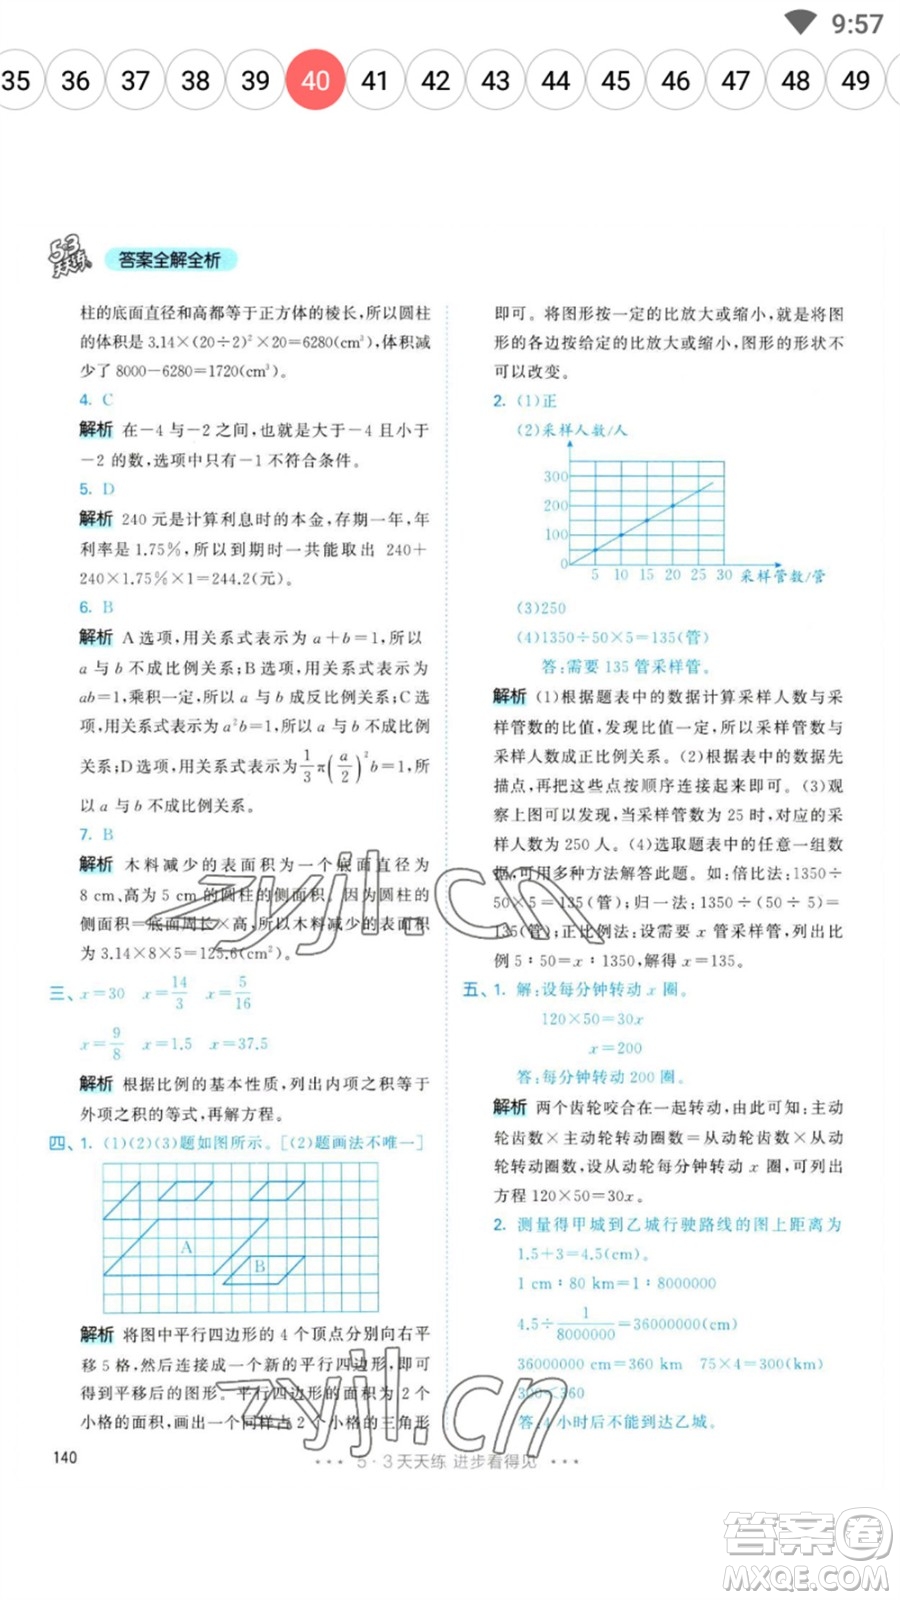 9:57
35 36 37 38 39 40 41 42 43 44 45 46 47 48 49
53
天天练
答案全解全析
柱的底面直径和高都等于正方体的棱长,所以圆柱
的体积是 3.14×(20÷2)²×20=6280(cm³),体积减
少了 8000-6280=1720(cm³)。
4. C
解析 在-4 与-2 之间,也就是大于-4 且小于
-2 的数,选项中只有-1 不符合条件。
5. D
解析 240 元是计算利息时的本金,存期一年,年
利率是 1.75%,所以到期时一共能取出 240+
240×1.75%×1=244.2(元)。
6. B
解析 A 选项,用关系式表示为 a+b=1,所以
a 与 b 不成比例关系;B 选项,用关系式表示为
ab=1,乘积一定,所以 a 与 b 成反比例关系;C 选
项,用关系式表示为 a²b=1,所以 a 与 b 不成比例
关系;D 选项,用关系式表示为 1/3 π(a/2)² b=1,所
以 a 与 b 不成比例关系。
7. B
解析 木料减少的表面积为一个底面直径为
8 cm、高为 5 cm 的圆柱的侧面积。因为圆柱的侧
面积=底面周长×高,所以木料减少的表面积为
3.14×8×5=125.6(cm²)。
三、x=30 x=14/3 x=5/16
x=9/8 x=1.5 x=37.5
解析 根据比例的基本性质,列出内项之积等于
外项之积的等式,再解方程。
四、1. (1)(2)(3)题如图所示。[(2)题画法不唯一]
A
B
解析 将图中平行四边形的 4 个顶点分别向右平
移 5 格,然后连接成一个新的平行四边形,即可
得到平移后的图形。平行四边形的面积为 2 个
小格的面积,画出一个同样占 2 个小格的三角形
即可。将图形按一定的比放大或缩小,就是将图
形的各边按给定的比放大或缩小,图形的形状不
可以改变。
2. (1)正
(2)采样人数/人
300
200
100
0
5 10 15 20 25 30 采样管数/管
(3)250
(4)1350÷50×5=135(管)
答:需要 135 管采样管。
解析 (1)根据题表中的数据计算采样人数与采
样管数的比值,发现比值一定,所以采样管数与
采样人数成正比例关系。(2)根据表中的数据先
描点,再把这些点按顺序连接起来即可。(3)观
察上图可以发现,当采样管数为 25 时,对应的采
样人数为 250 人。(4)选取题表中的任意一组数
据,可用多种方法解答此题。如:倍比法:1350÷
50×5=135(管);归一法:1350÷(50÷5)=
135(管);正比例法:设需要 x 管采样管,列出比
例 5∶50=x∶1350,解得 x=135。
五、1. 解:设每分钟转动 x 圈。
120×50=30x
x=200
答:每分钟转动 200 圈。
解析 两个齿轮咬合在一起转动,由此可知:主动
轮齿数×主动轮转动圈数=从动轮齿数×从动
轮转动圈数,设从动轮每分钟转动 x 圈,可列出
方程 120×50=30x。
2. 测量得甲城到乙城行驶路线的图上距离为
1.5+3=4.5(cm)。
1 cm∶80 km=1∶8000000
4.5÷1/8000000=36000000(cm)
36000000 cm=360 km 75×4=300(km)
300<360
答:4 小时后不能到达乙城。
140
5·3 天天练 进步看得见
zyjl.cn
zyjl.cn
答案卷
MXQE.COM